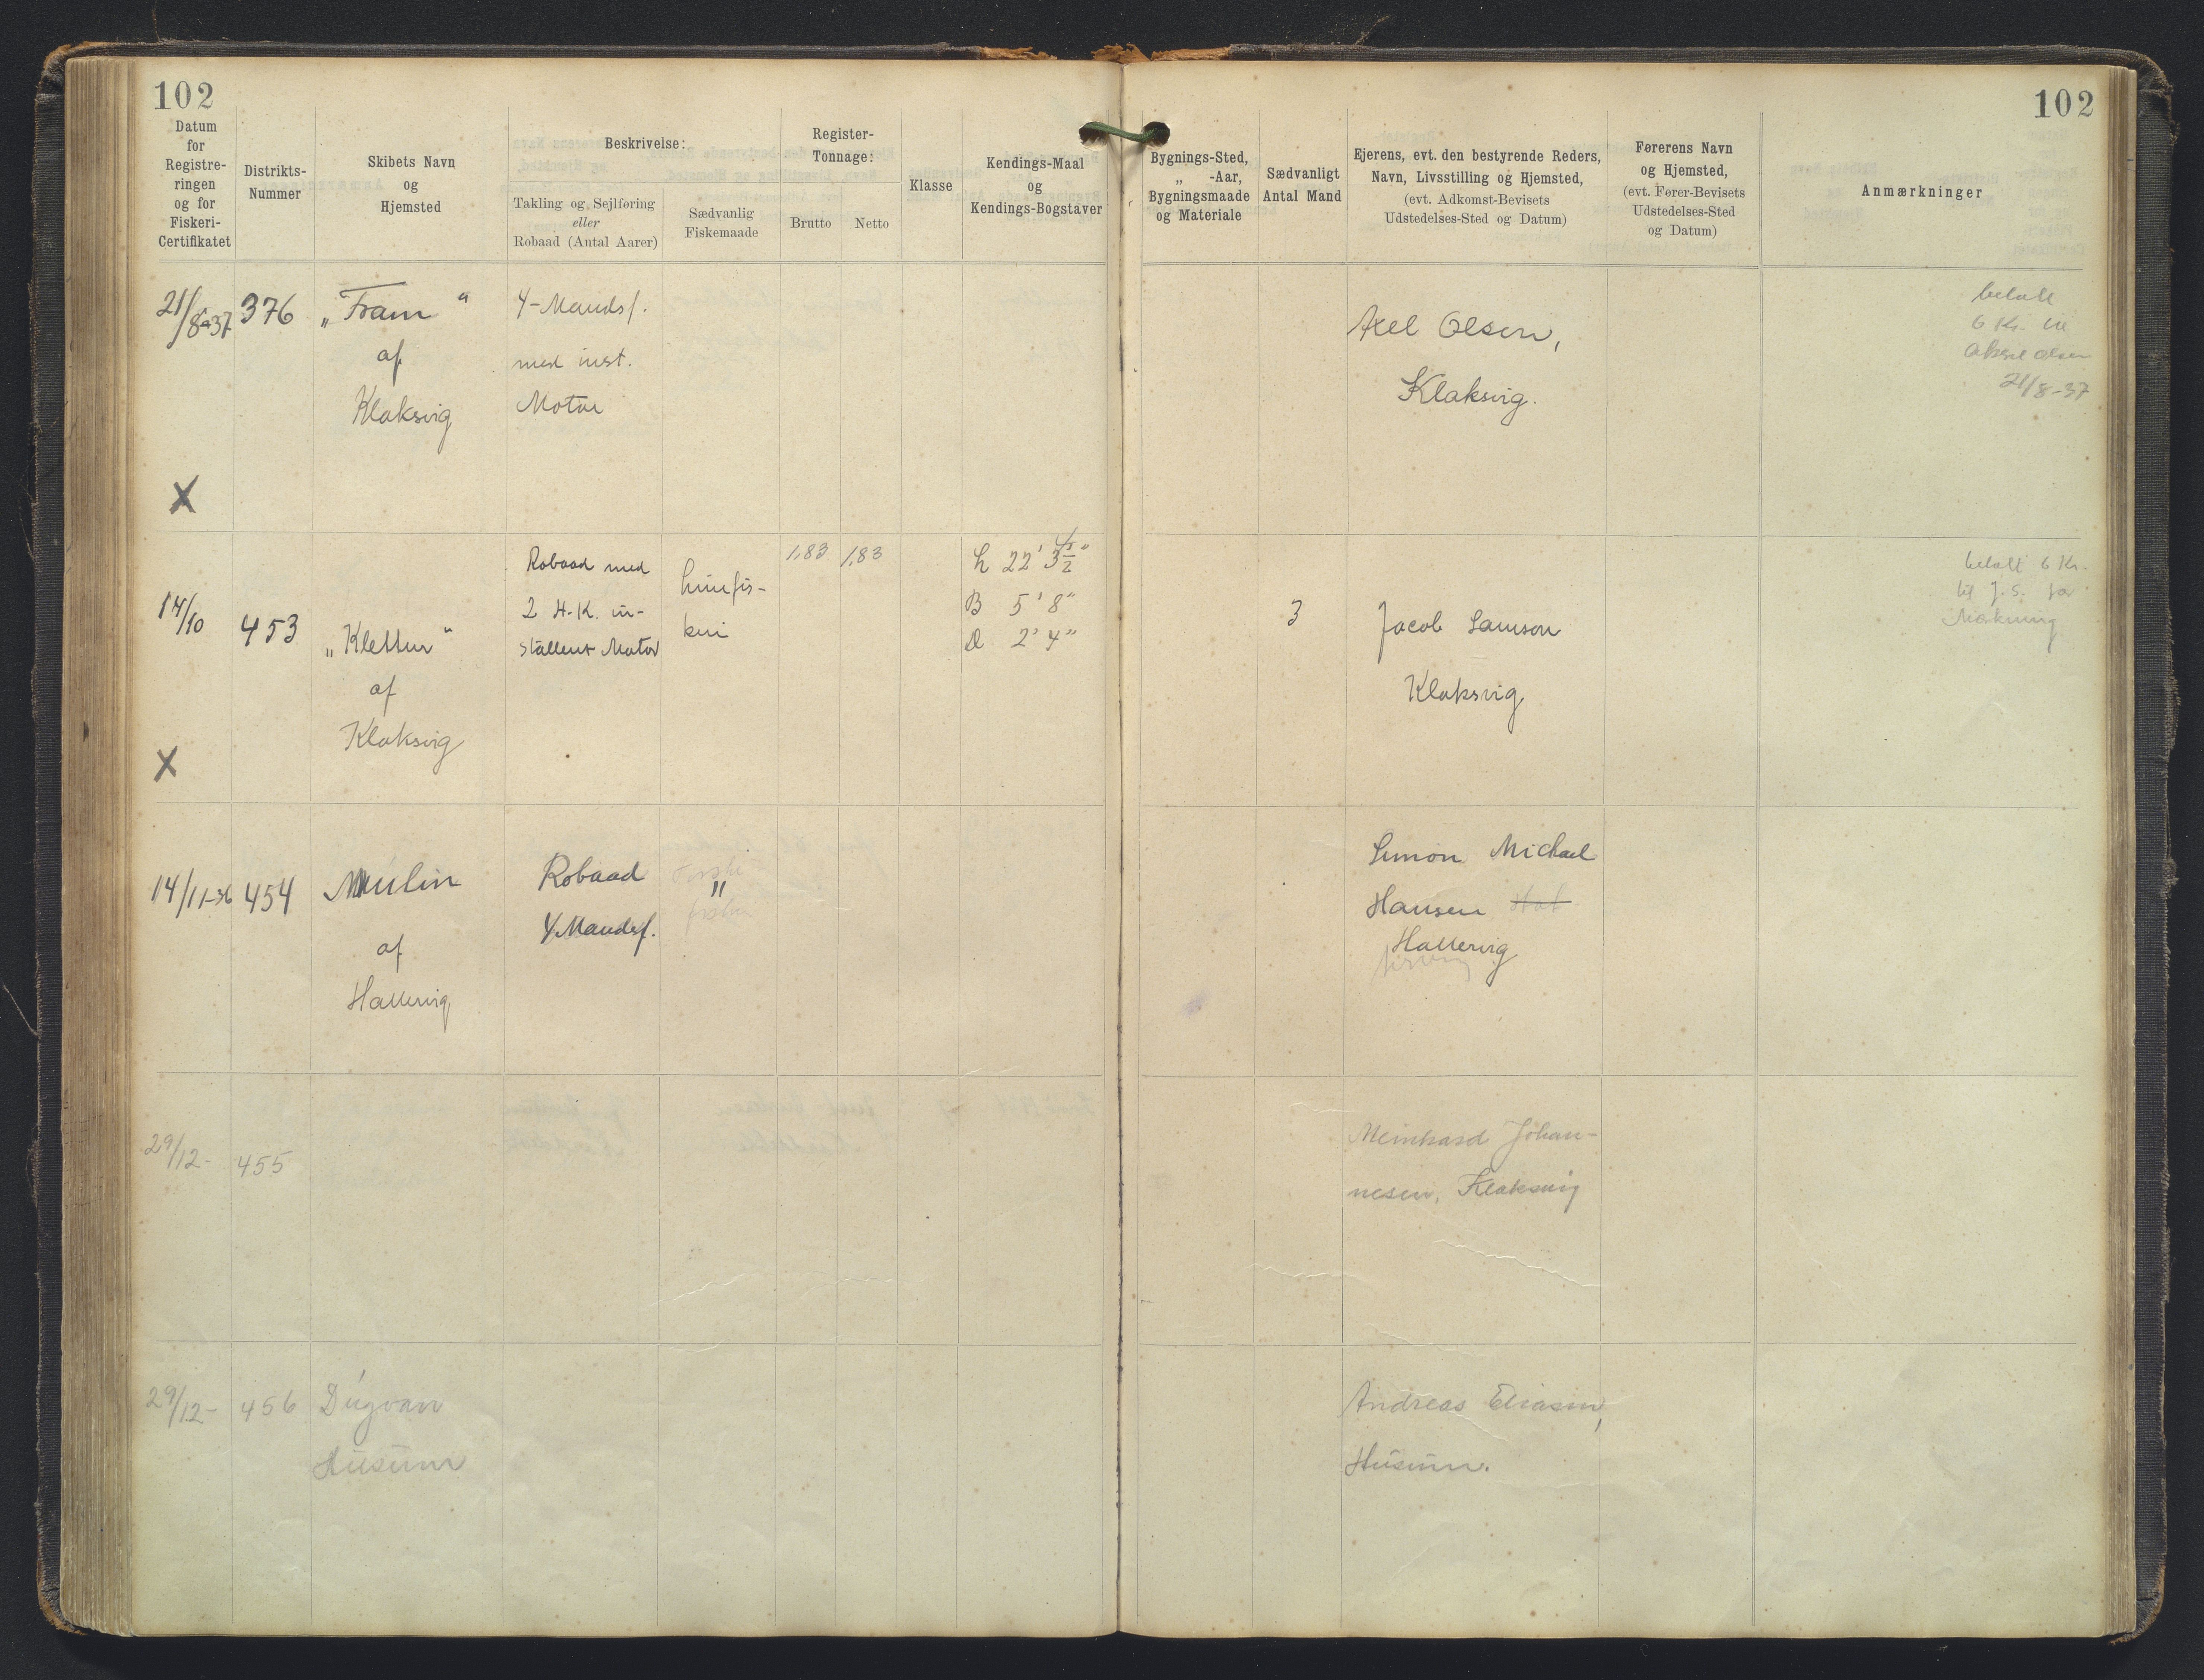 102
102
Datum
for
Registre-
ringen
og for
Fiskeri-
Certifikatet
Distrikts-
Nummer
Skibets Navn
og
Hjemsted
Beskrivelse:
Takling og Sejlføring
eller
Robaad (Antal Aarer)
Sædvanlig
Fiskemaade
Register-
Tonnage:
Brutto
Netto
Klasse
Kendings-Maal
og
Kendings-Bogstaver
Bygnings-Sted,
„ -Aar,
Bygningsmaade
og Materiale
Sædvanligt
Antal Mand
Ejerens, evt. den bestyrende Reders,
Navn, Livsstilling og Hjemsted,
(evt. Adkomst-Bevisets
Udstedelses-Sted og Datum)
Førerens Navn
og Hjemsted,
(evt. Fører-Bevisets
Udstedelses-Sted
og Datum)
Anmærkninger
21/8-37
376
„Fram"
af
Klaksvig
4-Mandsf.
med inst.
Motor
Axel Olsen,
Klaksvig.
betalt
6 Kr.
Olsen
21/8-37
X
14/10
453
„Klettur"
af
Klaksvig
Robaad med
2 H.K. in-
stallert Motor
Linefis-
keri
1,83
1,83
L 22' 3 1/2"
B 5' 8"
D 2' 4"
3
Jacob Samson
Klaksvig
betalt 6 Kr.
til J. S. for
Makning
X
14/11-36
454
Múlin
af
Hattervig
Robaad
4 Mandsf.
"
Simon Michael
Hansen Hat
Hattervig
29/12-
455
Meinhard Johan-
nesen, Klaksvig
29/12-
456
Dúgvan
Húsum
Andreas Eliasen,
Húsum.